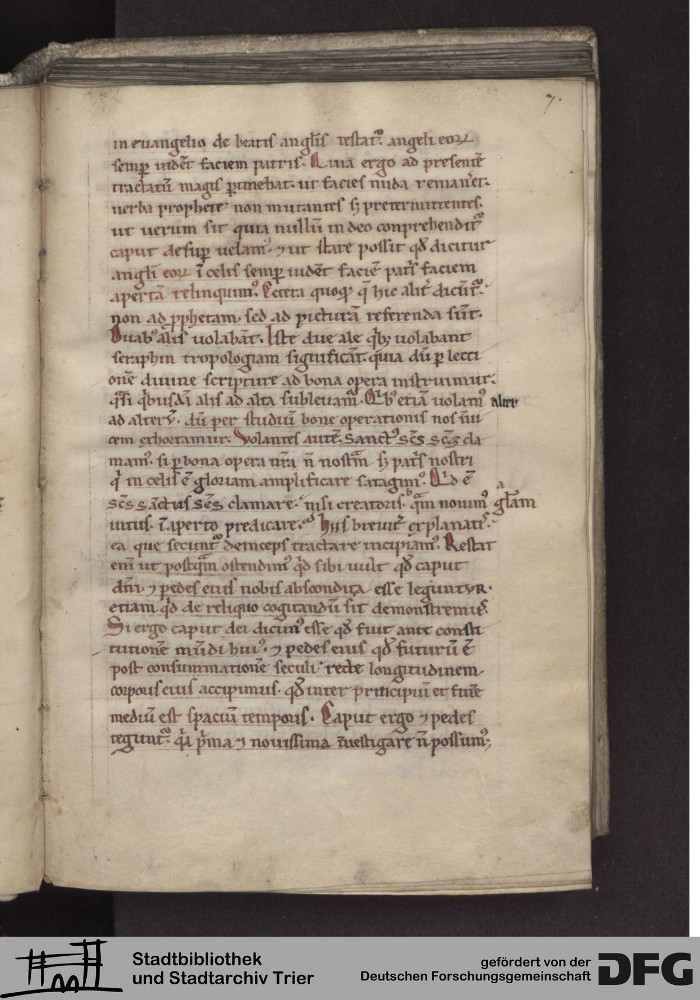 7.
in euangelio de beatis anglis testat᷒. angeli eoꝝ
semp uidēt faciem patris. Quia ergo ad presentē
tractatū magis ptinebat. ut facies nuda remaneret.
uerba prophete non mutantes sꝫ pretermittentes.
ut uerum sit quia nullū in deo conprehendit᷒
caput desup uelam᷒. ⁊ ut stare possit qd̄ dicitur
angli eoꝝ ī celis semp uidēt faciē pat̄s faciem
apertā relinquim᷒. Cetera quoqꝫ q̄ hic alit̄ dicūt᷒.
non ad ꝓphetam. sed ad picturā referenda sūt.
Duab᷒ alis uolabāt. Iste due ale qͥbꝫ uolabant
seraphin tropologiam significāt. quia dū p lecti
onē diuine scripture ad bona opera instruimur.
qͣsi qͥbusdā alis ad alta subleuam᷒. Qͥb᷒ etiā uolam᷒ alter
ad alterū. dū per studium bone operationis nos inui
cem exhortamur. Uolantes autē. Sanct᷒ sc̄s sc̄s cla
mam᷒. si p bona opera nr̄a n̄ nostrā sꝫ pat̄s nostri
qͥ in celis ē gloriam amplificare satagim᷒. Qͥd ē
sc̄s sanctus sc̄s clamare. nisi creatoris qͣm nouim᷒ gl̄am
intus. ī aperto predicare. Hiis breuit̄ explanatis.
ea que secunt᷒ deinceps tractare incipiam᷒. Restat
enī ut postqͣm ostendim᷒ qͥd sibi uult qd̄ caput
dn̄i. ⁊ pedes eius nobis abscondita esse leguntur.
etiam qͥd de reliquo cogitandū sit demonstremus.
Si ergo caput dei dicim᷒ esse qd̄ fuit ante consti
tutionē mūdi hui᷒. ⁊ pedes eius qd̄ futurū ē
post consummationē seculi. recte longitudinem
corporis eius accipimus. qd̄ inter principiū et finē
mediū est spaciū temporis. Caput ergo ⁊ pedes
tegunt᷒. qͥa pͥma ⁊ nouissima īuestigare n̄ possum᷒;
Stadtbibliothek
und Stadtarchiv Trier
gefördert von der
Deutschen Forschungsgemeinschaft DFG